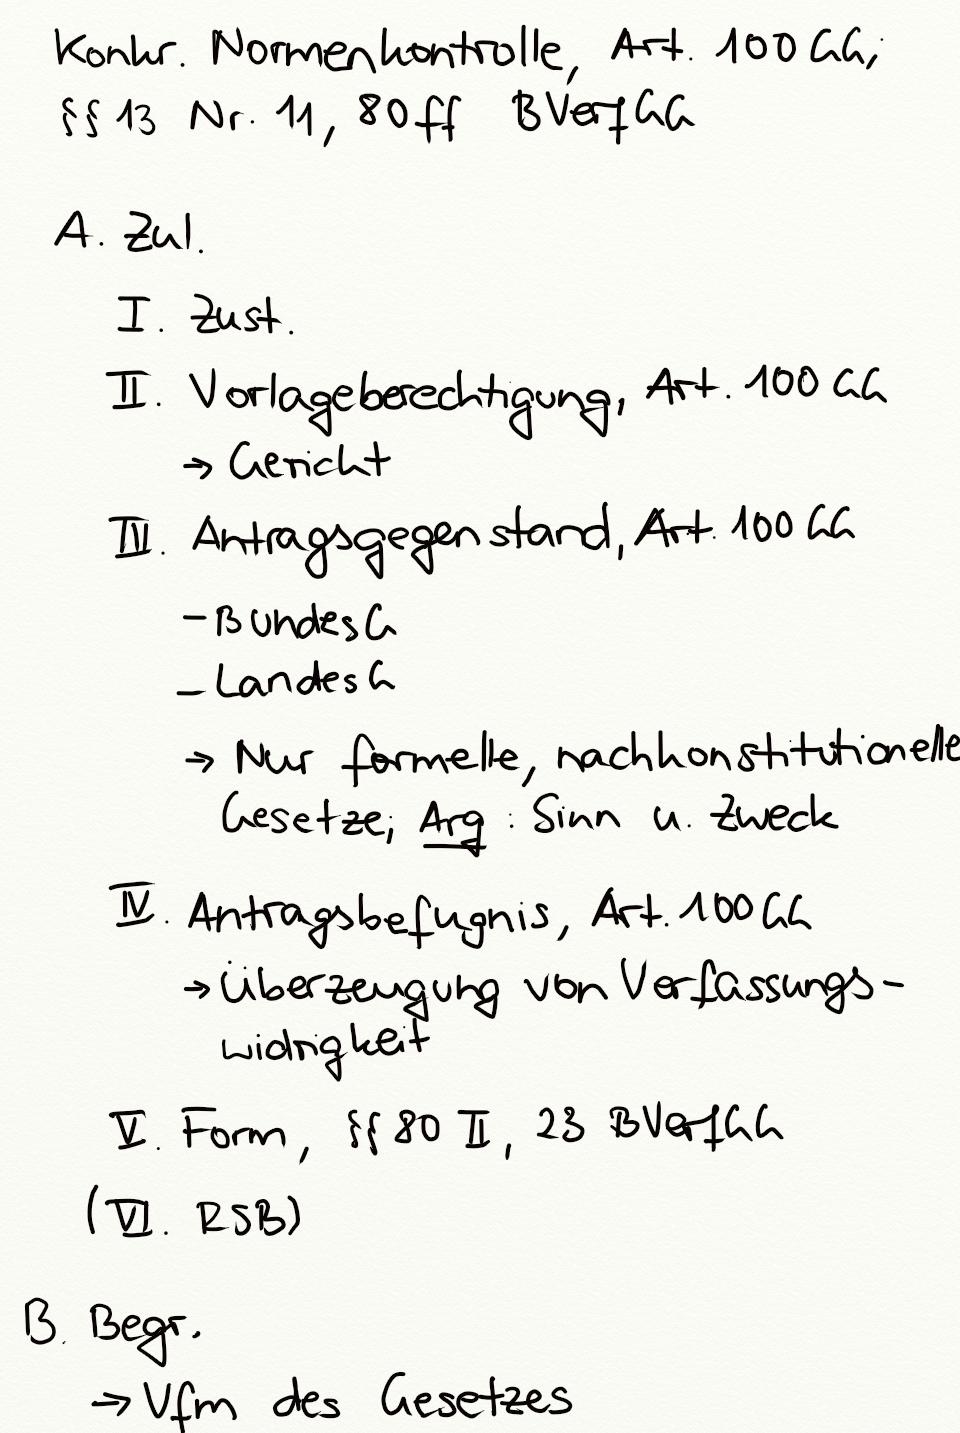 Konkr. Normenkontrolle, Art. 100 GG;
§§ 13 Nr. 11, 80ff BVerfGG
A. Zul.
I. Zust.
II. Vorlageberechtigung, Art. 100 GG
→ Gericht
III. Antragsgegenstand, Art. 100 GG
- BundesG
- LandesG
→ Nur formelle, nachkonstitutionelle
Gesetze; Arg: Sinn u. Zweck
IV. Antragsbefugnis, Art. 100 GG
→ Überzeugung von Verfassungs-
widrigkeit
V. Form, §§ 80 II, 23 BVerfGG
(VI. RSB)
B. Begr.
→ Vfm des Gesetzes